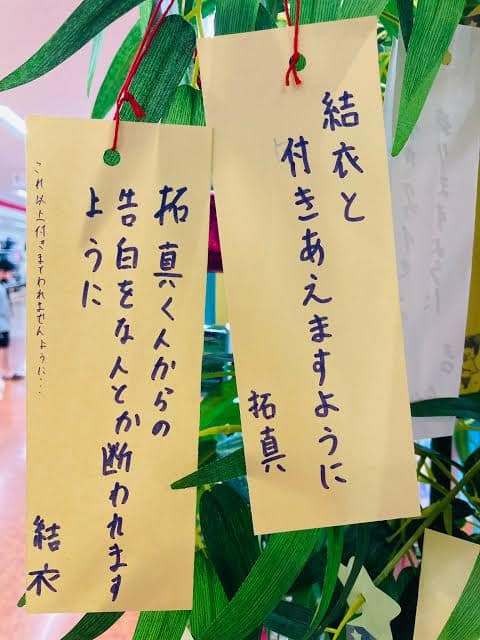 結衣と
付きあえますように
拓真
拓真くんからの
告白をなんとか断われます
ように
これ以上付きまとわれませんように・・・
結衣